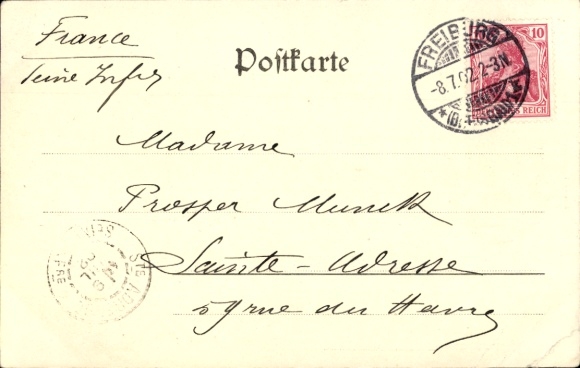 France
Seine Infre
Postkarte
FREIBURG
-8.7.02.2-3N.
10
REICH
Madame
Prosper Munck
Sainte-Adresse
59 rue du Havre